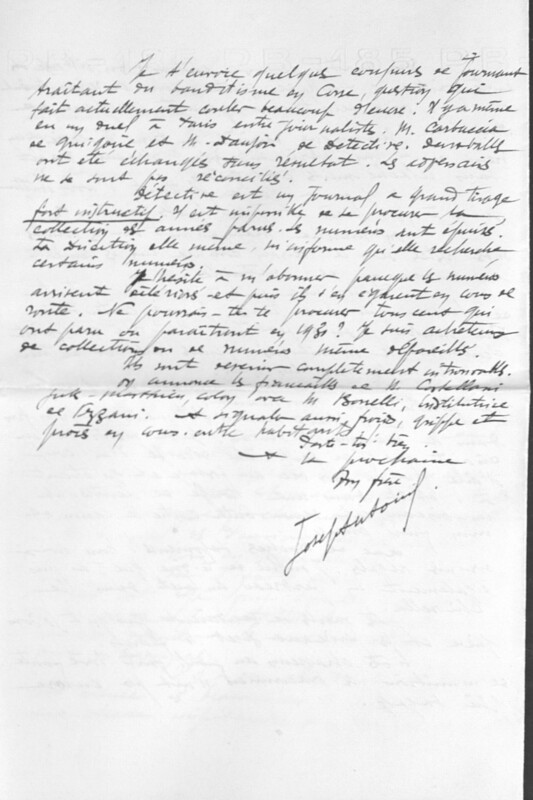 Je t'envoie quelques coupures de journaux
traitant du banditisme en Corse, question qui
fait actuellement couler beaucoup d'encre. Il y a même
eu un duel à Paris entre journalistes. M. Carbuccia
de Gringoire et M. de Détective. Deux balles
ont été échangées sans résultat. Les adversaires
ne se sont pas réconciliés.
Détective est un journal a grand tirage
fort instructif. Il est impossible de se procurer la
collection des années parues. Les numéros sont épuisés.
La Direction elle même, m'informe qu'elle recherche
certains numéros.
J'hésite à m'abonner parce que les numéros
arrivent et puis ils s'en égarent en cours de
route. Ne pourrais-tu te procurer tous ceux qui
ont paru ou paraîtront en 1930? Je suis acheteur
de collections ou de numéros même défraîchis.
Ils sont devenus complètement introuvables.
On annonce les fiançailles de M.
avec M Bonelli, institutrice
de A signaler aussi, froid, grippe et
procès en cours entre habitants.
Porte-toi bien
A la prochaine
Ton frère
Joseph Antoine